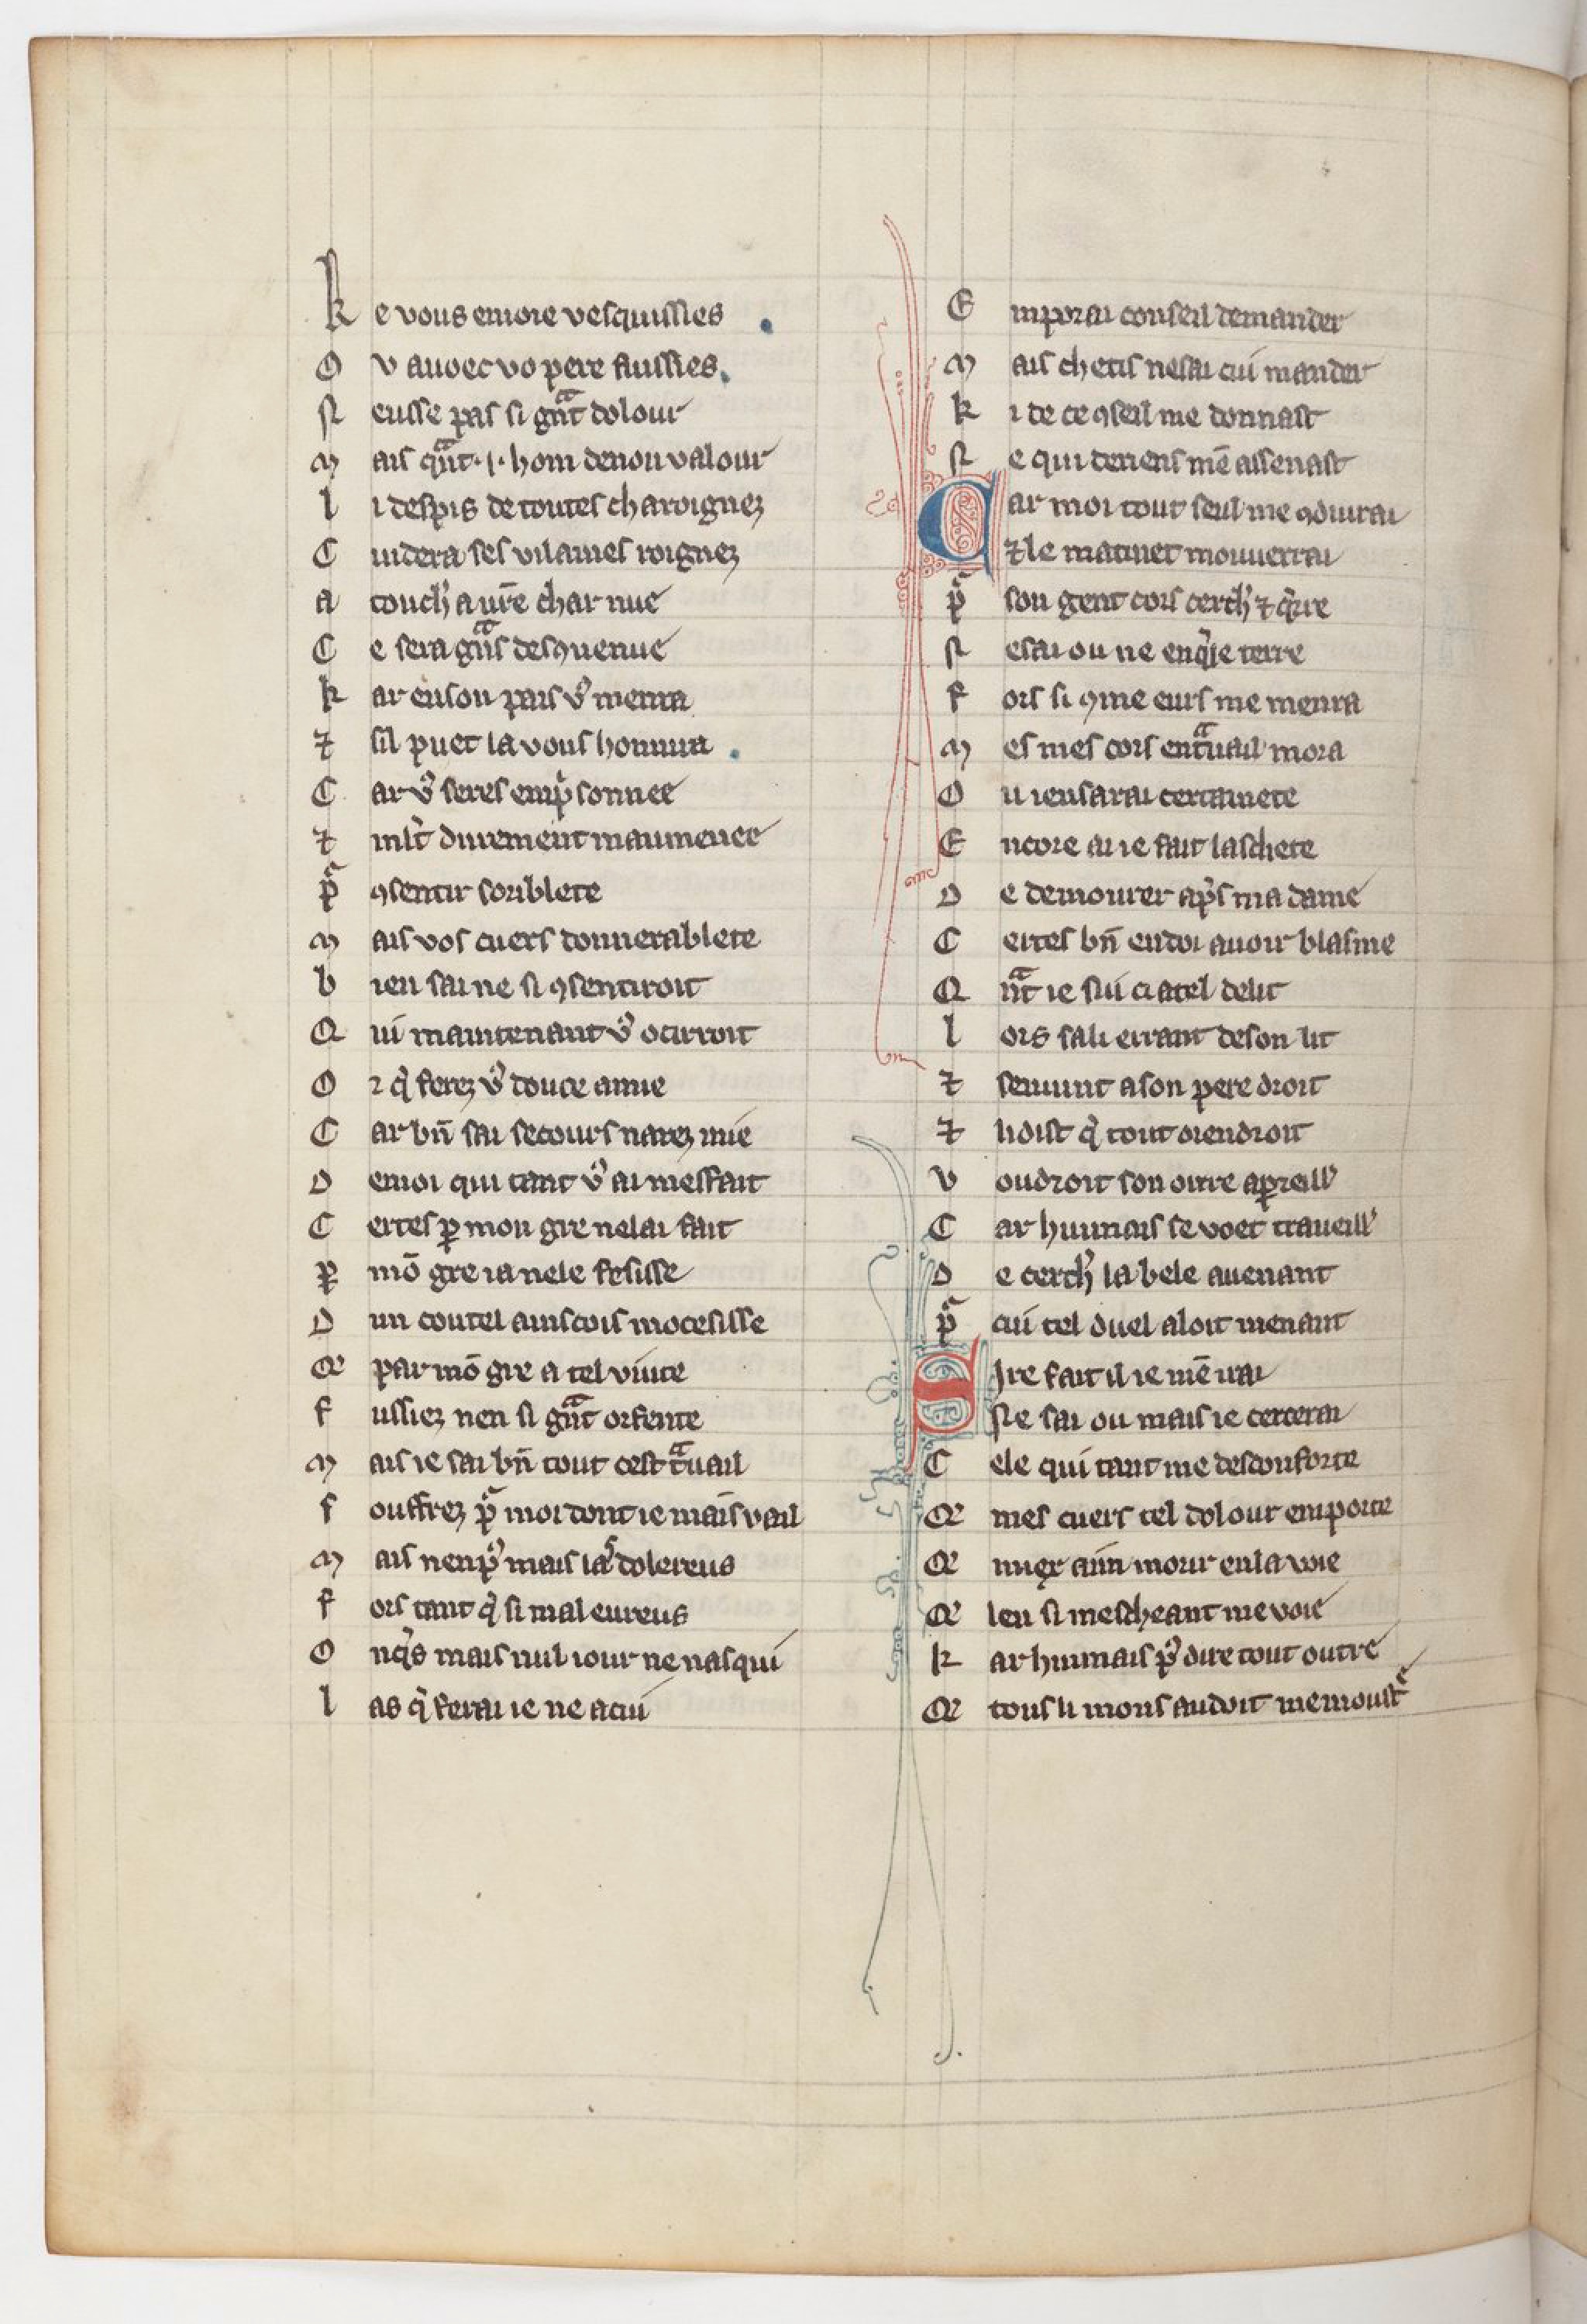 Ke vous encore vesquissies
Ou auoec vo pere fuissies
Neusse pas si gͣnt dolour
Mais qͣnt .I. hom de nou valour
Li despis de toutes charoignez
Cuidera ses vilaines roignez
A touchʼ a vr̄e char nue
Ce sera gͣns desꝯuenue
Kar en son pais vꝰ menra
⁊ sil puet la vous honnira
Car vꝰ seres emprisonnee
⁊ ml̄t durement maumenee
Pͣ ꝯsentir sor iblete
Mais vos cuers donnerablete
Bien sai ne si ꝯsentiroit
Qui maintenant vꝰ ocirroit
Or q̇ ferez vꝰ douce amie
Car bn̄ sai secours narez mie
De moi qui tant vꝰ ai mesfait
Certes ꝑ mon gre nelai fait
Ꝑ mō gre ia nele fesisse
Dun coutel ainscois mocesisse
Qe par mō gre a tel viute
Fussiez nen si gͣnt orfente
Mais ie sai bn̄ tout cest tͣuail
Souffrez pͣ moi dont ie mains vail
Mais nen pꝰ mais las dolereus
Fors tant q̇ si mal eureus
Onq̇s mais nul iour ne nasqui
Las q̇ ferai ie ne a cui
Em porai conseil demander
Mais chetis ne sai cui mander
Ki de ce ꝯseil me donnast
Ne qui de riens mē assenast
Car moi tout seul me ꝯduirai
⁊ le matinet mouuerrai
Pͣ son gent cors cerchʼ ⁊ q̇rre
Ne sai ou ne en q̇le terre
Fors si ꝯme eurs me menra
Mes mes cors en tͣuail mora
Ou ien sarai certainete
Encore ai ie fait laschete
De demourer apʼs ma dame
Certes bn̄ en doi auoir blasme
Qͣnt ie sui ci a tel delit
Lors sali errant de son lit
⁊ seuint a son pere droit
⁊ li dist q̇ tout orendroit
Voudroit son oirre apͣreillʼ
Car huimais se voet traueillʼ
De cerchʼ la bele auenant
Pͣ cui tel duel aloit menant
Sire fait il ie mē irai
Ne sai ou mais ie cercerai
Cele qui tant me desconforte
Qe mes cuers tel dolour emporte
Qe miex aim morir en la voie
Qe len si mescheant me voie
Kar huimais pꝰ dire tout outre
Qe tous li mons au doit me moustͤ